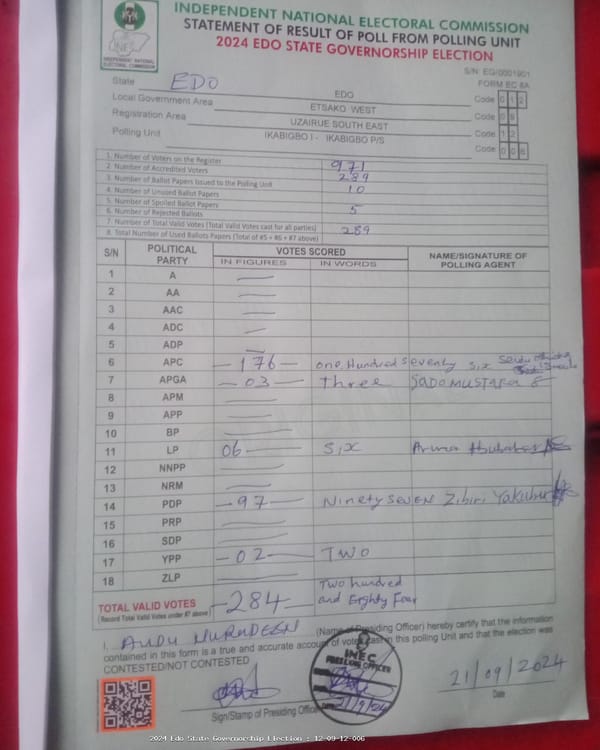 INDEPENDENT NATIONAL ELECTORAL COMMISSION
STATEMENT OF RESULT OF POLL FROM POLLING UNIT
2024 EDO STATE GOVERNORSHIP ELECTION
INEC
INDEPENDENT NATIONAL ELECTORAL COMMISSION
S/N: EG/0001901
FORM EC 8A
State EDO
Local Government Area EDO Code 0 1 2
Registration Area ETSAKO WEST Code 0 9
Polling Unit UZAIRUE SOUTH EAST Code 1 2
IKABIGBO I - IKABIGBO P/S Code 0 0 6
1. Number of Voters on the Register 971
2. Number of Accredited Voters 289
3. Number of Ballot Papers Issued to the Polling Unit
4. Number of Unused Ballot Papers 10
5. Number of Spoiled Ballot Papers
6. Number of Rejected Ballots 5
7. Number of Total Valid Votes (Total Valid Votes cast for all parties)
8. Total Number of Used Ballots Papers (Total of #5 + #6 + #7 above) 289
S/N POLITICAL PARTY VOTES SCORED NAME/SIGNATURE OF POLLING AGENT
IN FIGURES IN WORDS
1 A
2 AA
3 AAC
4 ADC
5 ADP
6 APC -176- One Hundred Seventy Six
7 APGA -03- Three SADO MUSTAPHA
8 APM
9 APP
10 BP
11 LP 06 Six
12 NNPP
13 NRM
14 PDP -97- Ninety Seven Zibiri Yakubu
15 PRP
16 SDP
17 YPP -02- TWO
18 ZLP
TOTAL VALID VOTES -284- Two hundred and Eighty Four
(Record Total Valid Votes under #7 above)
I, AUDU NURADEEN (Name of Presiding Officer) hereby certify that the information
contained in this form is a true and accurate account of votes cast in this polling Unit and that the election was
CONTESTED/NOT CONTESTED
INEC
PRESIDING OFFICER
21/9/24
Sign/Stamp of Presiding Officer
21/09/2024
Date
2024 Edo State Governorship Election : 12-09-12-006